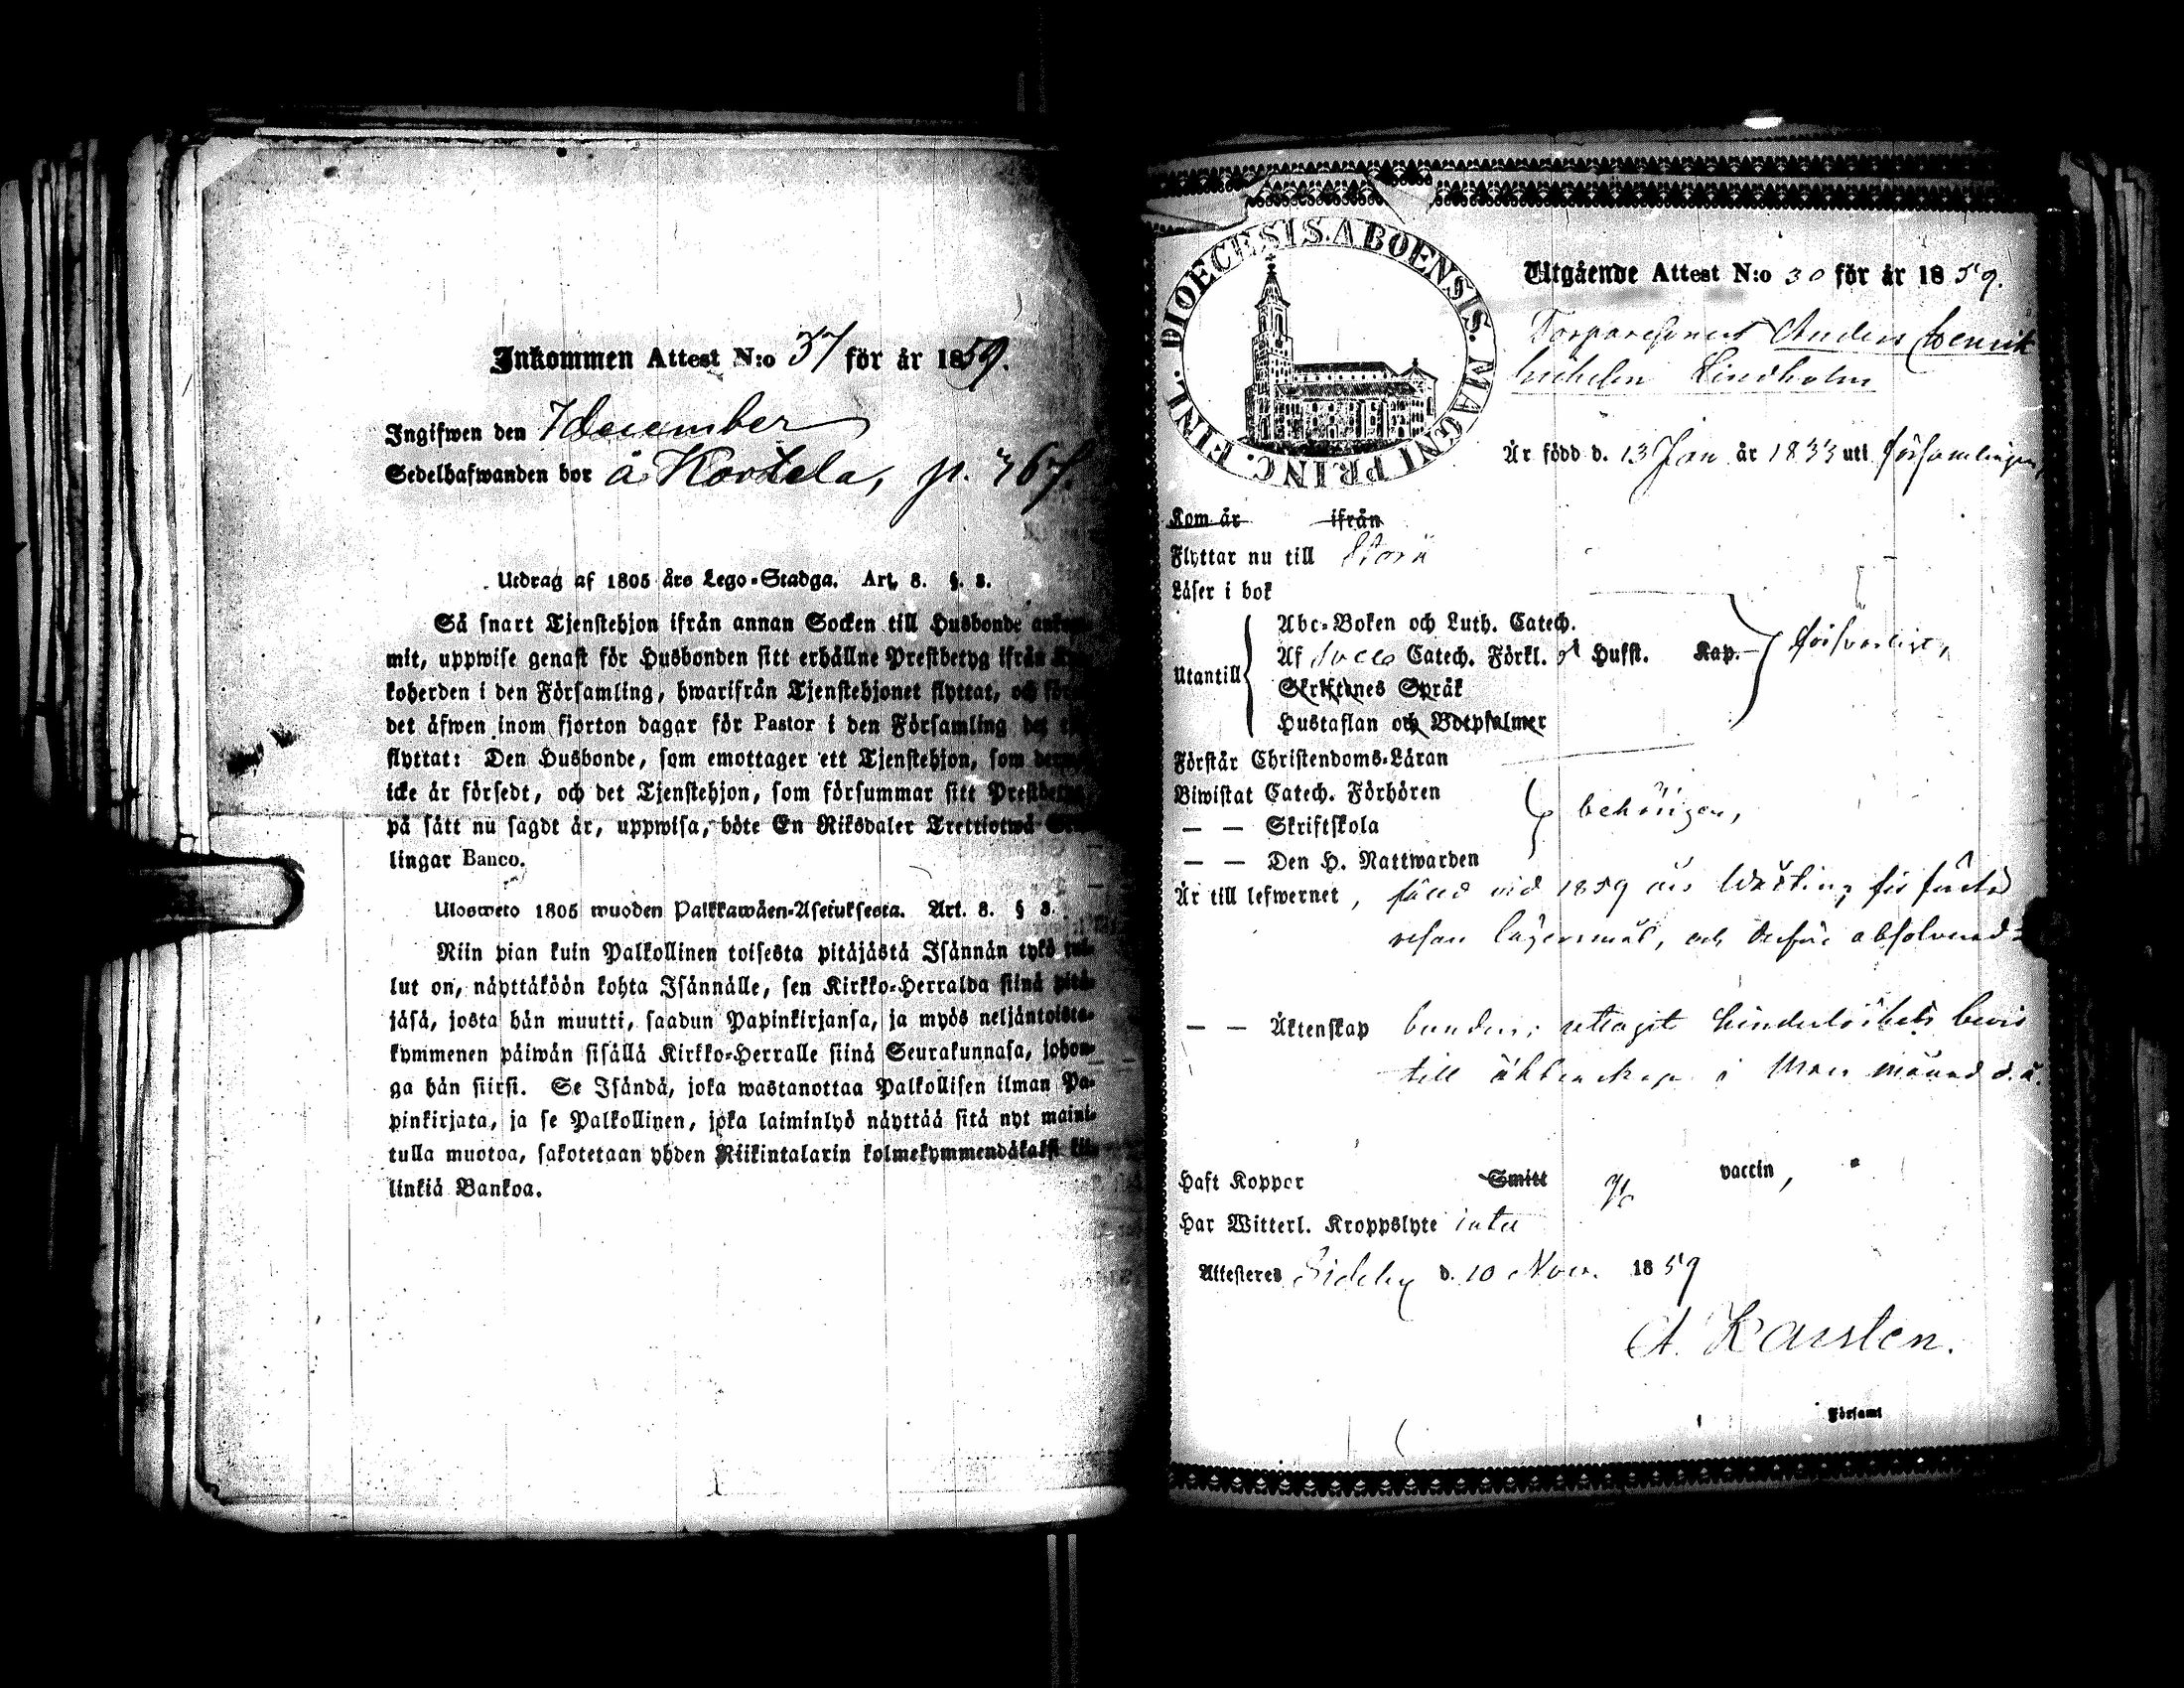 Inkommen Attest N:o 37 för år 1859.
Ingifwen den 7 december
Sedelhafwanden bor å Kortela, p. 767.
Utdrag af 1805 års Lego-Stadga. Art. 8. §. 8.
Så snart Tjenstehjon ifrån annan Socken till Husbonde
mit, uppwise genast för Husbonden sitt erhållne Prestbetyg ifrån
koherden i den Församling, hwarifrån Tjenstehjonet flyttat, och
det åfwen inom fjorton dagar för Pastor i den Församling det
flyttat: Den Husbonde, som emottager ett Tjenstehjon, som
icke är försedt, och det Tjenstehjon, som försummar sitt
på sätt nu sagdt är, uppwisa, böte En Riksdaler Trettiotwå
lingar Banco.
Ulosweto 1805 wuoden Palkkawäen-Asetuksesta. Art. 8. § 8.
Niin pian kuin Palkollinen toisesta pitäjästä Isännän tykö tul-
lut on, näyttäköön kohta Isännälle, sen Kirkko-Herralda siinä pitä-
jäsä, josta hän muutti, saadun Papinkirjansa, ja myös neljäntoista-
kymmenen päiwän sisällä Kirkko-Herralle siinä Seurakunnasa, johon-
ga hän siirsi. Se Isändä, joka wastanottaa Palkollisen ilman Pa-
pinkirjata, ja se Palkollinen, joka laiminlyö näyttää sitä nyt maini-
tulla muotoa, sakotetaan yhden Riikintalarin kolmekymmendäkaksi
linkiä Bankoa.
DIOECESIS. ABOENSIS. MAGNI PRINC. FINL.
Utgående Attest N:o 30 för år 1859.
Anders Henrik
Lindholm
Är född d. 13 Jan år 1833 uti församlingen,
Kom år ifrån
Flyttar nu till Storå
Läser i bok
Abc-Boken och Luth. Catech.
Utantill Af Catech. Förkl. Husst. Kap. försvarligt,
Skriftenes Språk
Hustaflan och Botpsalmer
Förstår Christendoms-Läran
Biwistat Catech. Förhören
behörigen,
— — Skriftskola
— — Den H. Nattwarden
Är till lefwernet, 1859 års
lägersmål, och derföre
— — Äktenskap uttagit hinderlöshets bevis
till äktenskap i månad d. å.
Haft Koppor Smitt vaccin,
Har Witterl. Kroppslyte intet
Attesteres Sideby d. 10 Nov. 1859
A. Karsten.
Församl